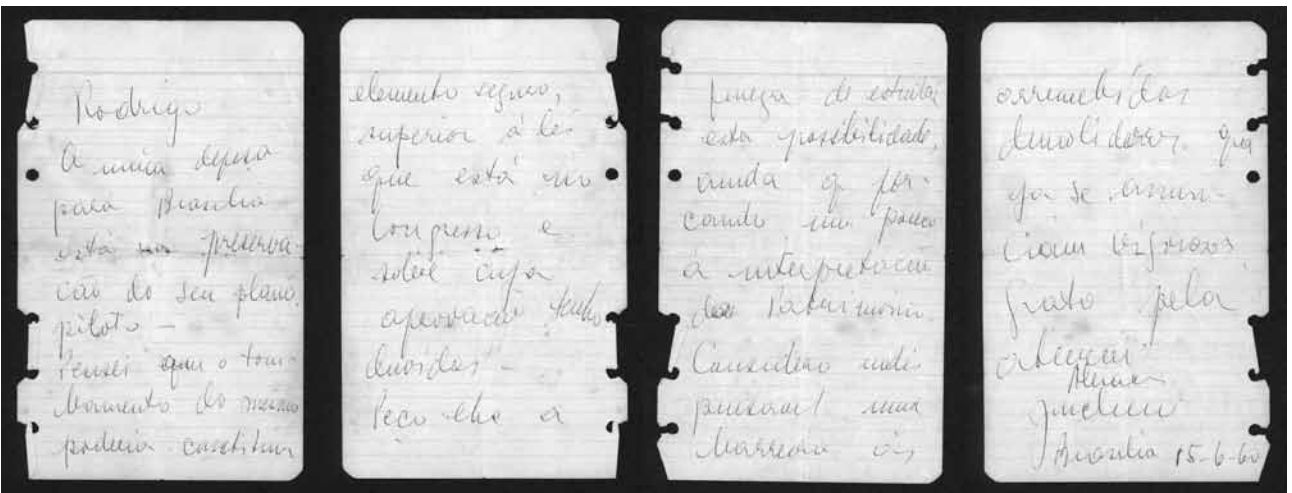 Rodrigo
A unica defesa
para Brasilia
está na preserva-
ção do seu plano
piloto -
Pensei que o tom-
bamento do mesmo
poderia constituir
elemento seguro,
superior á lei
que está no
Congresso e
sobre cuja
aprovação tenho
duvidas -
Peço-lhe a
fineza de estudar
esta possibilidade,
ainda q for-
cando um pouco
a interpretação
do Patrimonio.
Considero indis
pensavel uma
barreira ás
arremetidas
demolidoras que
já se anun-
ciam vigorosas
Grato pela
atenção
Juscelino
Brasilia 15-6-60